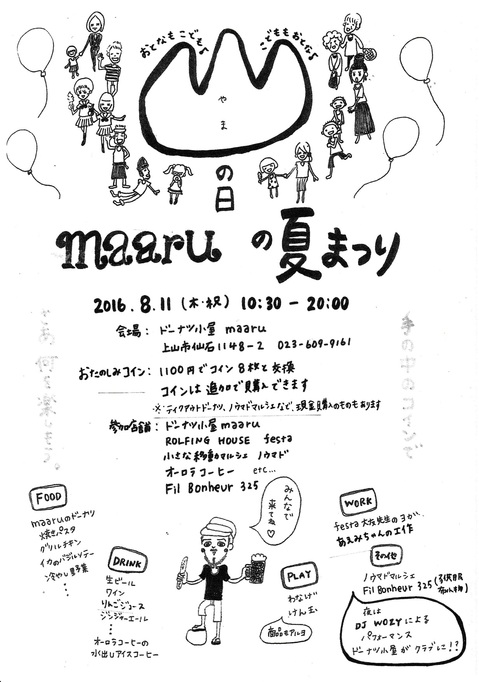 おとなもこどもも
こどももおとなも
やま
の日
maaruの夏まつり
2016.8.11（木・祝）10:30 - 20:00
会場：ドーナツ小屋 maaru
上山市仙石1148-2 023-609-9161
おたのしみコイン：1100円でコイン8枚と交換
コインは追加で購入できます
※テイクアウトドーナツ、ノウマドマルシェなど、現金購入のものもあります
参加店舗：ドーナツ小屋maaru
ROLFING HOUSE festa
小さな移動マルシェ ノウマド
オーロラコーヒー etc...
Fil Bonheur 325
手の中のコインで
さあ、何を楽しもう。
FOOD
maaruのドーナツ
焼きパスタ
グリルチキン
イカのバジルソテー
冷やし夏野菜
DRINK
生ビール
ワイン
りんごジュース
ジンジャーエール
オーロラコーヒーの
水出しアイスコーヒー
みんなで
来てね♡
PLAY
わなげ
けん玉
商品もアルヨ
WORK
festa 大友先生のヨガ
あみちゃんの工作
その他
ノウマドマルシェ
Fil Bonheur 325（子供服
夜は
DJ WOZYによる
パフォーマンス
ドーナツ小屋がクラブに!?